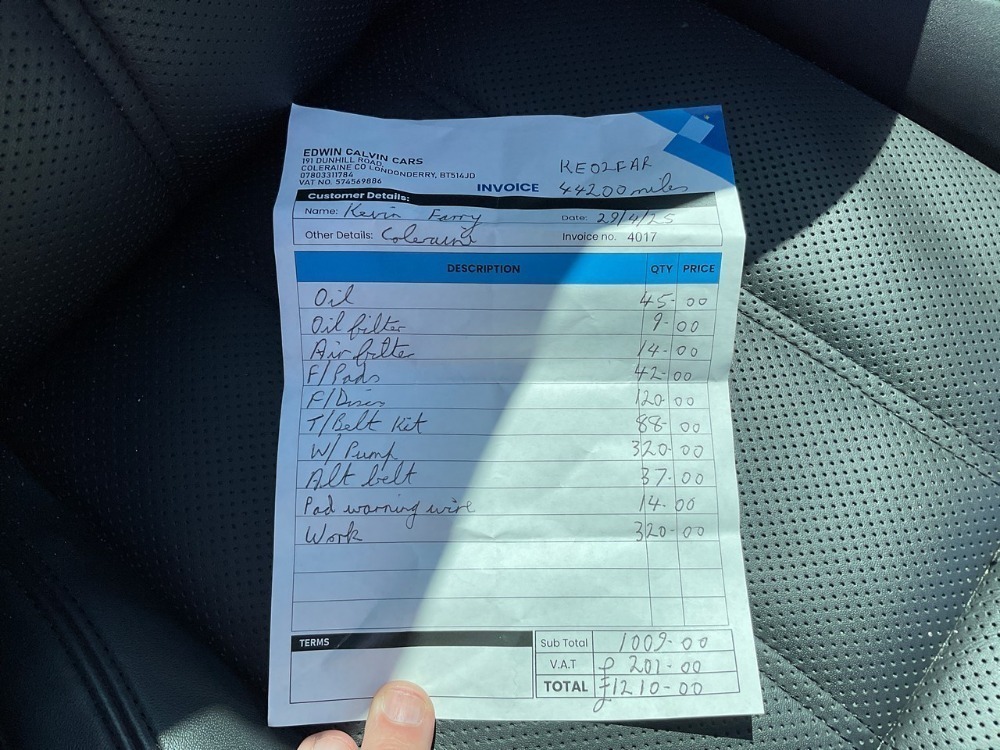 EDWIN CALVIN CARS
191 DUNHILL ROAD,
COLERAINE CO LONDONDERRY, BT514JD
07803311784
VAT NO. 574569886
INVOICE
KEO2FAR
44200 miles
Customer Details:
Name: Kevin Farry Date: 29/4/25
Other Details: Coleraine Invoice no. 4017
DESCRIPTION QTY PRICE
Oil 45-00
Oil filter 9-00
Air filter 14-00
F/Pads 42-00
F/Discs 120-00
T/Belt Kit 88-00
W/Pump 320-00
Alt belt 37-00
Pad warning wire 14-00
Work 320-00
TERMS
Sub Total 1009-00
V.A.T £ 201-00
TOTAL £1210-00